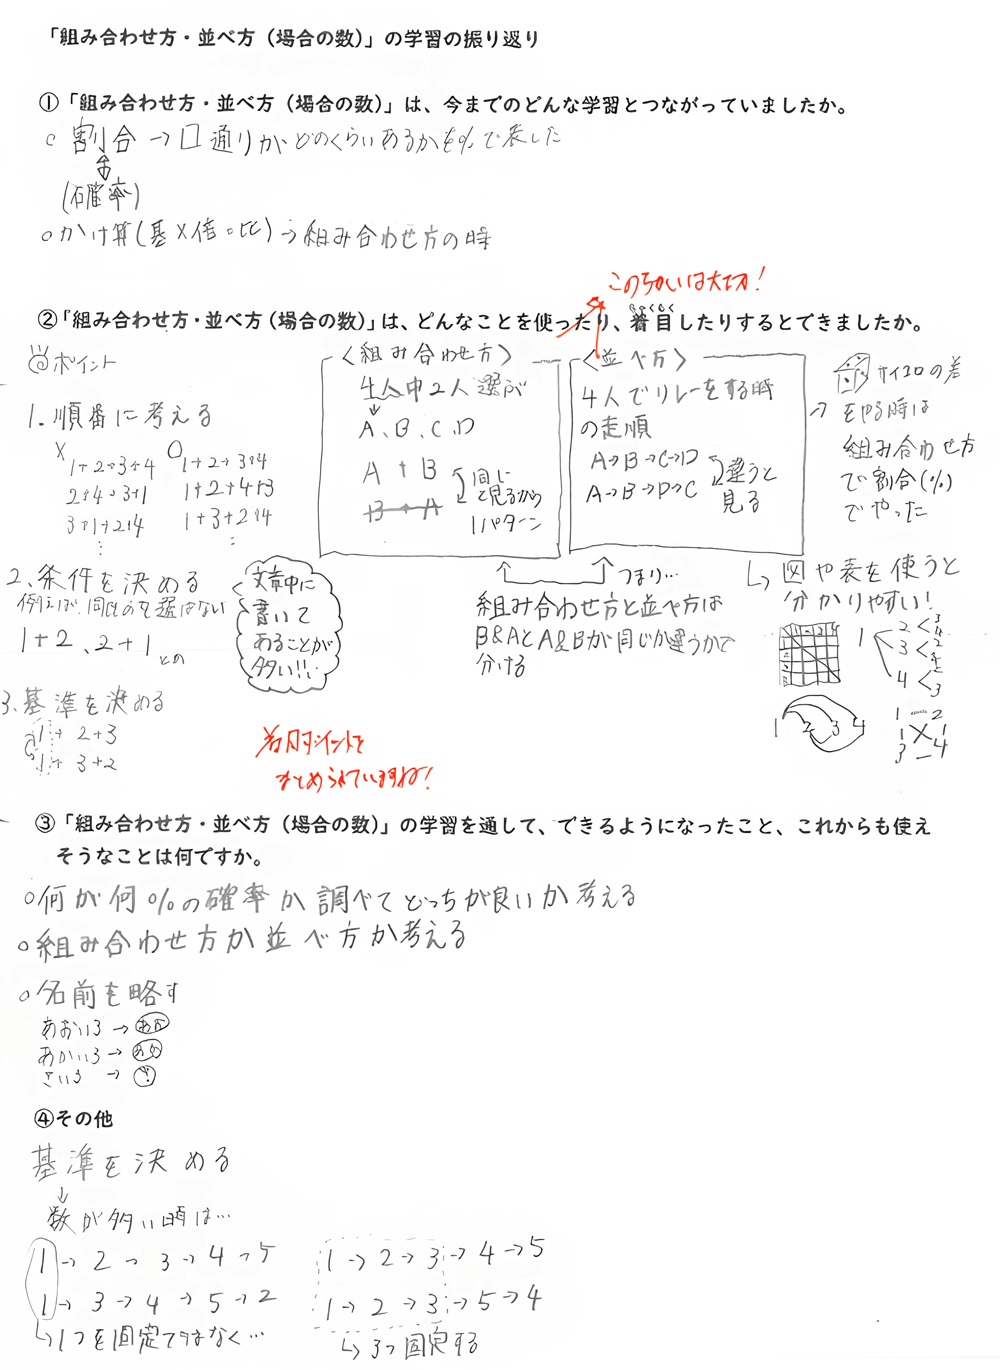 「組み合わせ方・並べ方（場合の数）」の学習の振り返り
①「組み合わせ方・並べ方（場合の数）」は、今までのどんな学習とつながっていましたか。
○割合→□通りがどのくらいあるかを%で表した
(確率)
○かけ算(基×倍=比)→組み合わせ方の時
このちがいは大切!
②「組み合わせ方・並べ方（場合の数）」は、どんなことを使ったり、着目したりするとできましたか。
ちゃくもく
ポイント
1.順番に考える
× 1+2+3+4
2+4+3+1
3+1+2+4
⋮
○ 1+2+3+4
1+2+4+3
1+3+2+4
⋮
2、条件を決める
例えば、同じのを選ばない
1+2、2+1
との
3.基準を決める
1+2+3
1+3+2
文章中に
書いて
あることが
多い!!…
〈組み合わせ方〉
4人中2人選ぶ
↓
A、B、C、D
A+B
B+A
同じ
と見るから
1パターン
〈並べ方〉
4人でリレーをする時
の走順
A→B→C→D
A→B→D→C
違うと
見る
つまり…
組み合わせ方と並べ方は
B&AとA&Bが同じか違うかで
分ける
サイコロの差
→をやる時は
組み合わせ方
で割合(%)
でやった
図や表を使うと
分かりやすい!
1 2 3 4
3 2 4
4 2 3
1 2 3 4
1 2
1 1
3 4
着目ポイントを
まとめられていますね!
③「組み合わせ方・並べ方（場合の数）」の学習を通して、できるようになったこと、これからも使え
そうなことは何ですか。
○何が何%の確率か調べてどっちが良いか考える
○組み合わせ方か並べ方か考える
○名前を略す
あおいろ→あお
あかいろ→あか
きいろ→き
④その他
基準を決める
↓
数が多い時は…
1→2→3→4→5
1→3→4→5→2
1つを固定ではなく…
1→2→3→4→5
1→2→3→5→4
3つ固定する